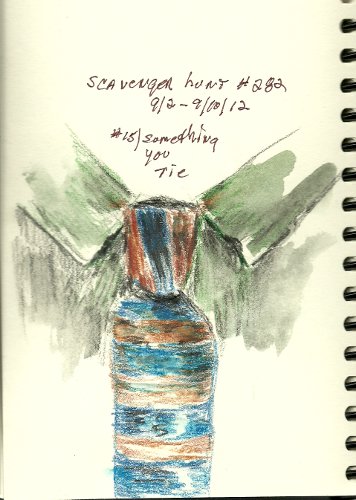 SCAVENGER HUNT #282
9/2-9/10/12
#15/something
you
Tie